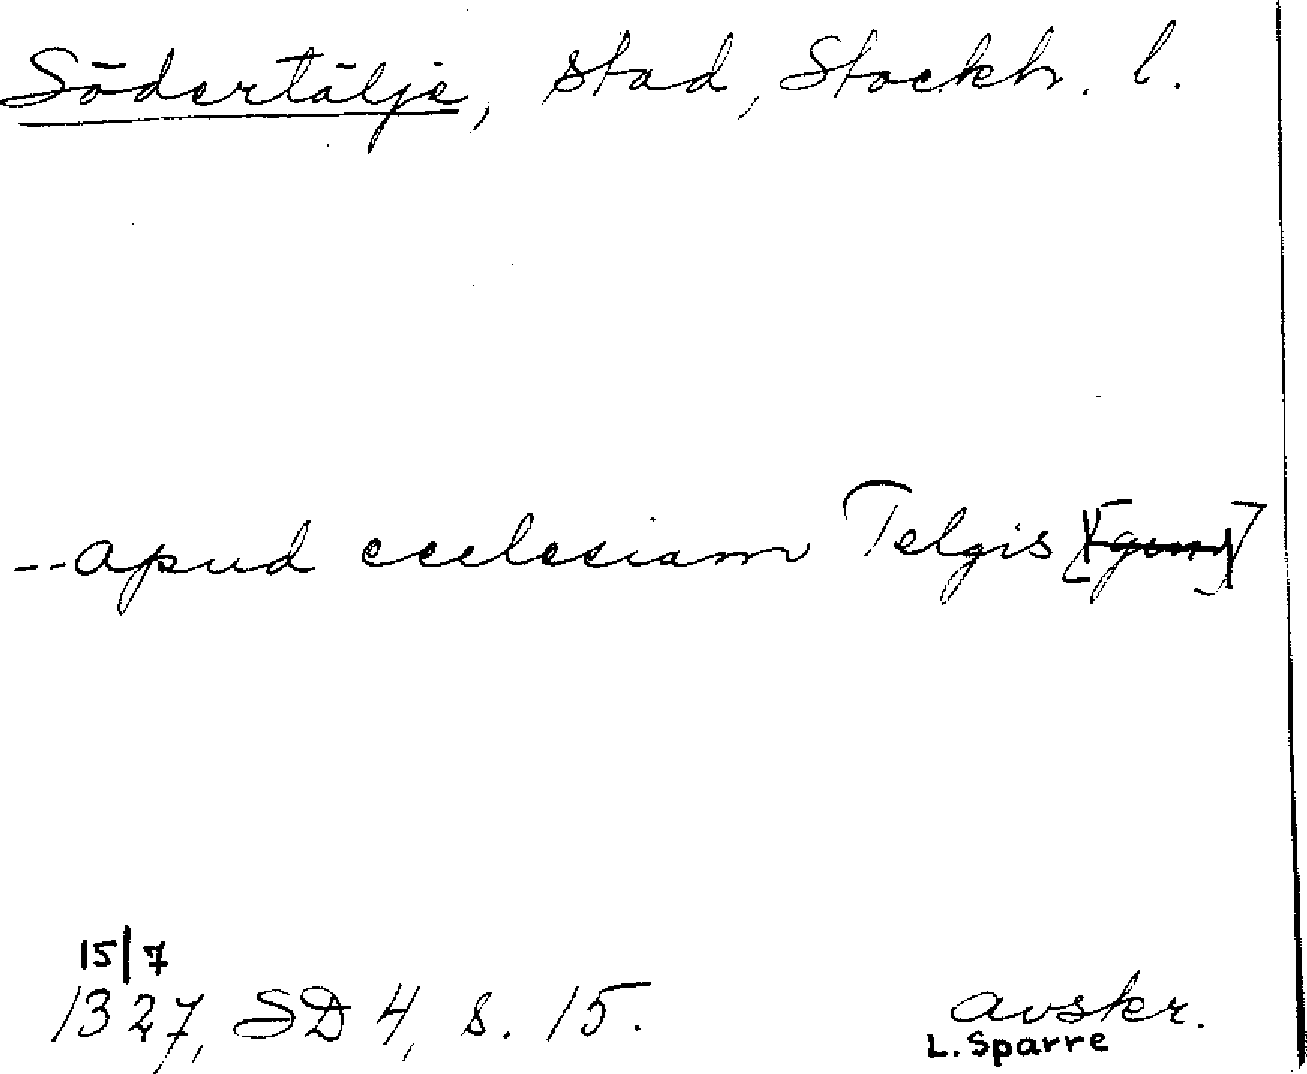 Södertälje, stad, Stockh. l.
--apud ecclesiam Telgis
15/7
1327, SD 4, s. 15.
avskr.
L. Sparre